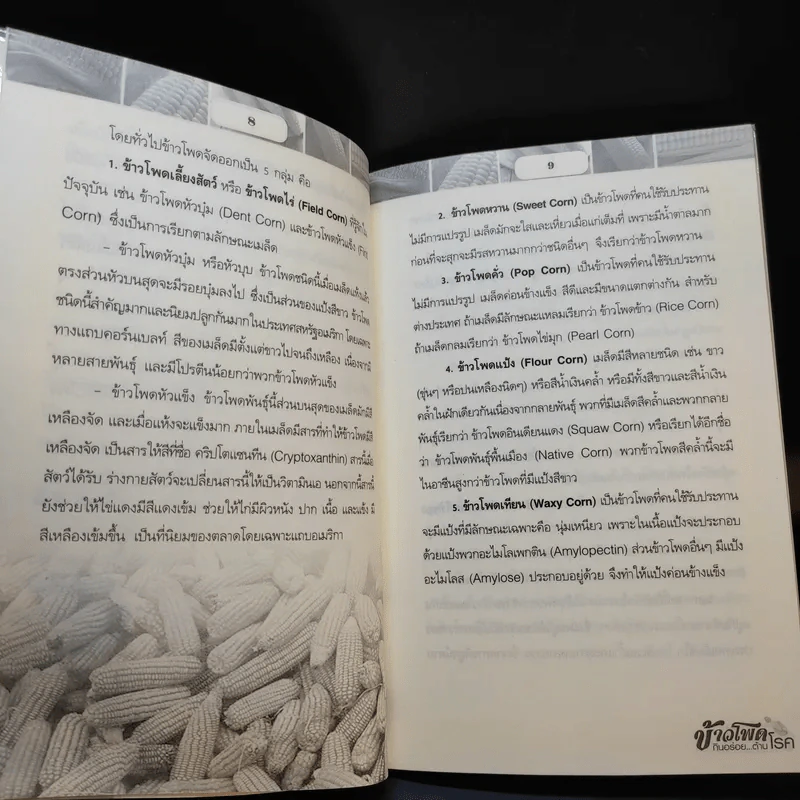 8
โดยทั่วไปข้าวโพดจัดออกเป็น 5 กลุ่ม คือ
1. ข้าวโพดเลี้ยงสัตว์ หรือ ข้าวโพดไร่ (Field Corn) ที่รู้จัก
ปัจจุบัน เช่น ข้าวโพดหัวบุ๋ม (Dent Corn) และข้าวโพดหัวแข็ง
Corn) ซึ่งเป็นการเรียกตามลักษณะเมล็ด
– ข้าวโพดหัวบุ๋ม หรือหัวบุบ ข้าวโพดชนิดนี้เมื่อเมล็ดแห้งแล้ว
ตรงส่วนหัวบนสุดจะมีรอยบุ๋มลงไป ซึ่งเป็นส่วนของแป้งสีขาว
ชนิดนี้สำคัญมากและนิยมปลูกกันมากในประเทศสหรัฐอเมริกา โดยเฉพาะ
ทางแถบคอร์นเบลท์ สีของเมล็ดมีตั้งแต่ขาวไปจนถึงเหลือง เนื่องจากมี
หลายสายพันธุ์ และมีโปรตีนน้อยกว่าพวกข้าวโพดหัวแข็ง
– ข้าวโพดหัวแข็ง ข้าวโพดพันธุ์นี้ส่วนบนสุดของเมล็ดมักมีสี
เหลืองจัด และเมื่อแห้งจะแข็งมาก ภายในเมล็ดมีสารที่ทำให้ข้าวโพดมีสี
เหลืองจัด เป็นสารให้สีที่ชื่อ คริปโตแซนทีน (Cryptoxanthin) สารนี้เมื่อ
สัตว์ได้รับ ร่างกายสัตว์จะเปลี่ยนสารนี้ให้เป็นวิตามินเอ นอกจากนี้สารนี้
ยังช่วยให้ไข่แดงมีสีแดงเข้ม ช่วยให้ไก่มีผิวหนัง ปาก เนื้อ และแข้ง มี
สีเหลืองเข้มขึ้น เป็นที่นิยมของตลาดโดยเฉพาะแถบอเมริกา
9
2. ข้าวโพดหวาน (Sweet Corn) เป็นข้าวโพดที่คนใช้รับประทาน
ไม่มีการแปรรูป เมล็ดมักจะใสและเหี่ยวเมื่อแก่เต็มที่ เพราะมีน้ำตาลมาก
ก่อนที่จะสุกจะมีรสหวานมากกว่าชนิดอื่นๆ จึงเรียกว่าข้าวโพดหวาน
3. ข้าวโพดคั่ว (Pop Corn) เป็นข้าวโพดที่คนใช้รับประทาน
ไม่มีการแปรรูป เมล็ดค่อนข้างแข็ง สีดีและมีขนาดแตกต่างกัน สำหรับ
ต่างประเทศ ถ้าเมล็ดมีลักษณะแหลมเรียกว่า ข้าวโพดข้าว (Rice Corn)
ถ้าเมล็ดกลมเรียกว่า ข้าวโพดไข่มุก (Pearl Corn)
4. ข้าวโพดแป้ง (Flour Corn) เมล็ดมีสีหลายชนิด เช่น ขาว
(ขุ่นๆ หรือปนเหลืองนิดๆ) หรือสีน้ำเงินคล้ำ หรือมีทั้งสีขาวและสีน้ำเงิน
คล้ำในฝักเดียวกันเนื่องจากกลายพันธุ์ พวกที่มีเมล็ดสีคล้ำและพวกกลาย
พันธุ์เรียกว่า ข้าวโพดอินเดียนแดง (Squaw Corn) หรือเรียกได้อีกชื่อ
ว่า ข้าวโพดพันธุ์พื้นเมือง (Native Corn) พวกข้าวโพดสีคล้ำนี้จะมี
ไนอาซีนสูงกว่าข้าวโพดที่มีแป้งสีขาว
5. ข้าวโพดเทียน (Waxy Corn) เป็นข้าวโพดที่คนใช้รับประทาน
จะมีแป้งที่มีลักษณะเฉพาะคือ นุ่มเหนียว เพราะในเนื้อแป้งจะประกอบ
ด้วยแป้งพวกอะไมโลเพกติน (Amylopectin) ส่วนข้าวโพดอื่นๆ มีแป้ง
อะไมโลส (Amylose) ประกอบอยู่ด้วย จึงทำให้แป้งค่อนข้างแข็ง
ข้าวโพด
กินอร่อย...ต้านโรค